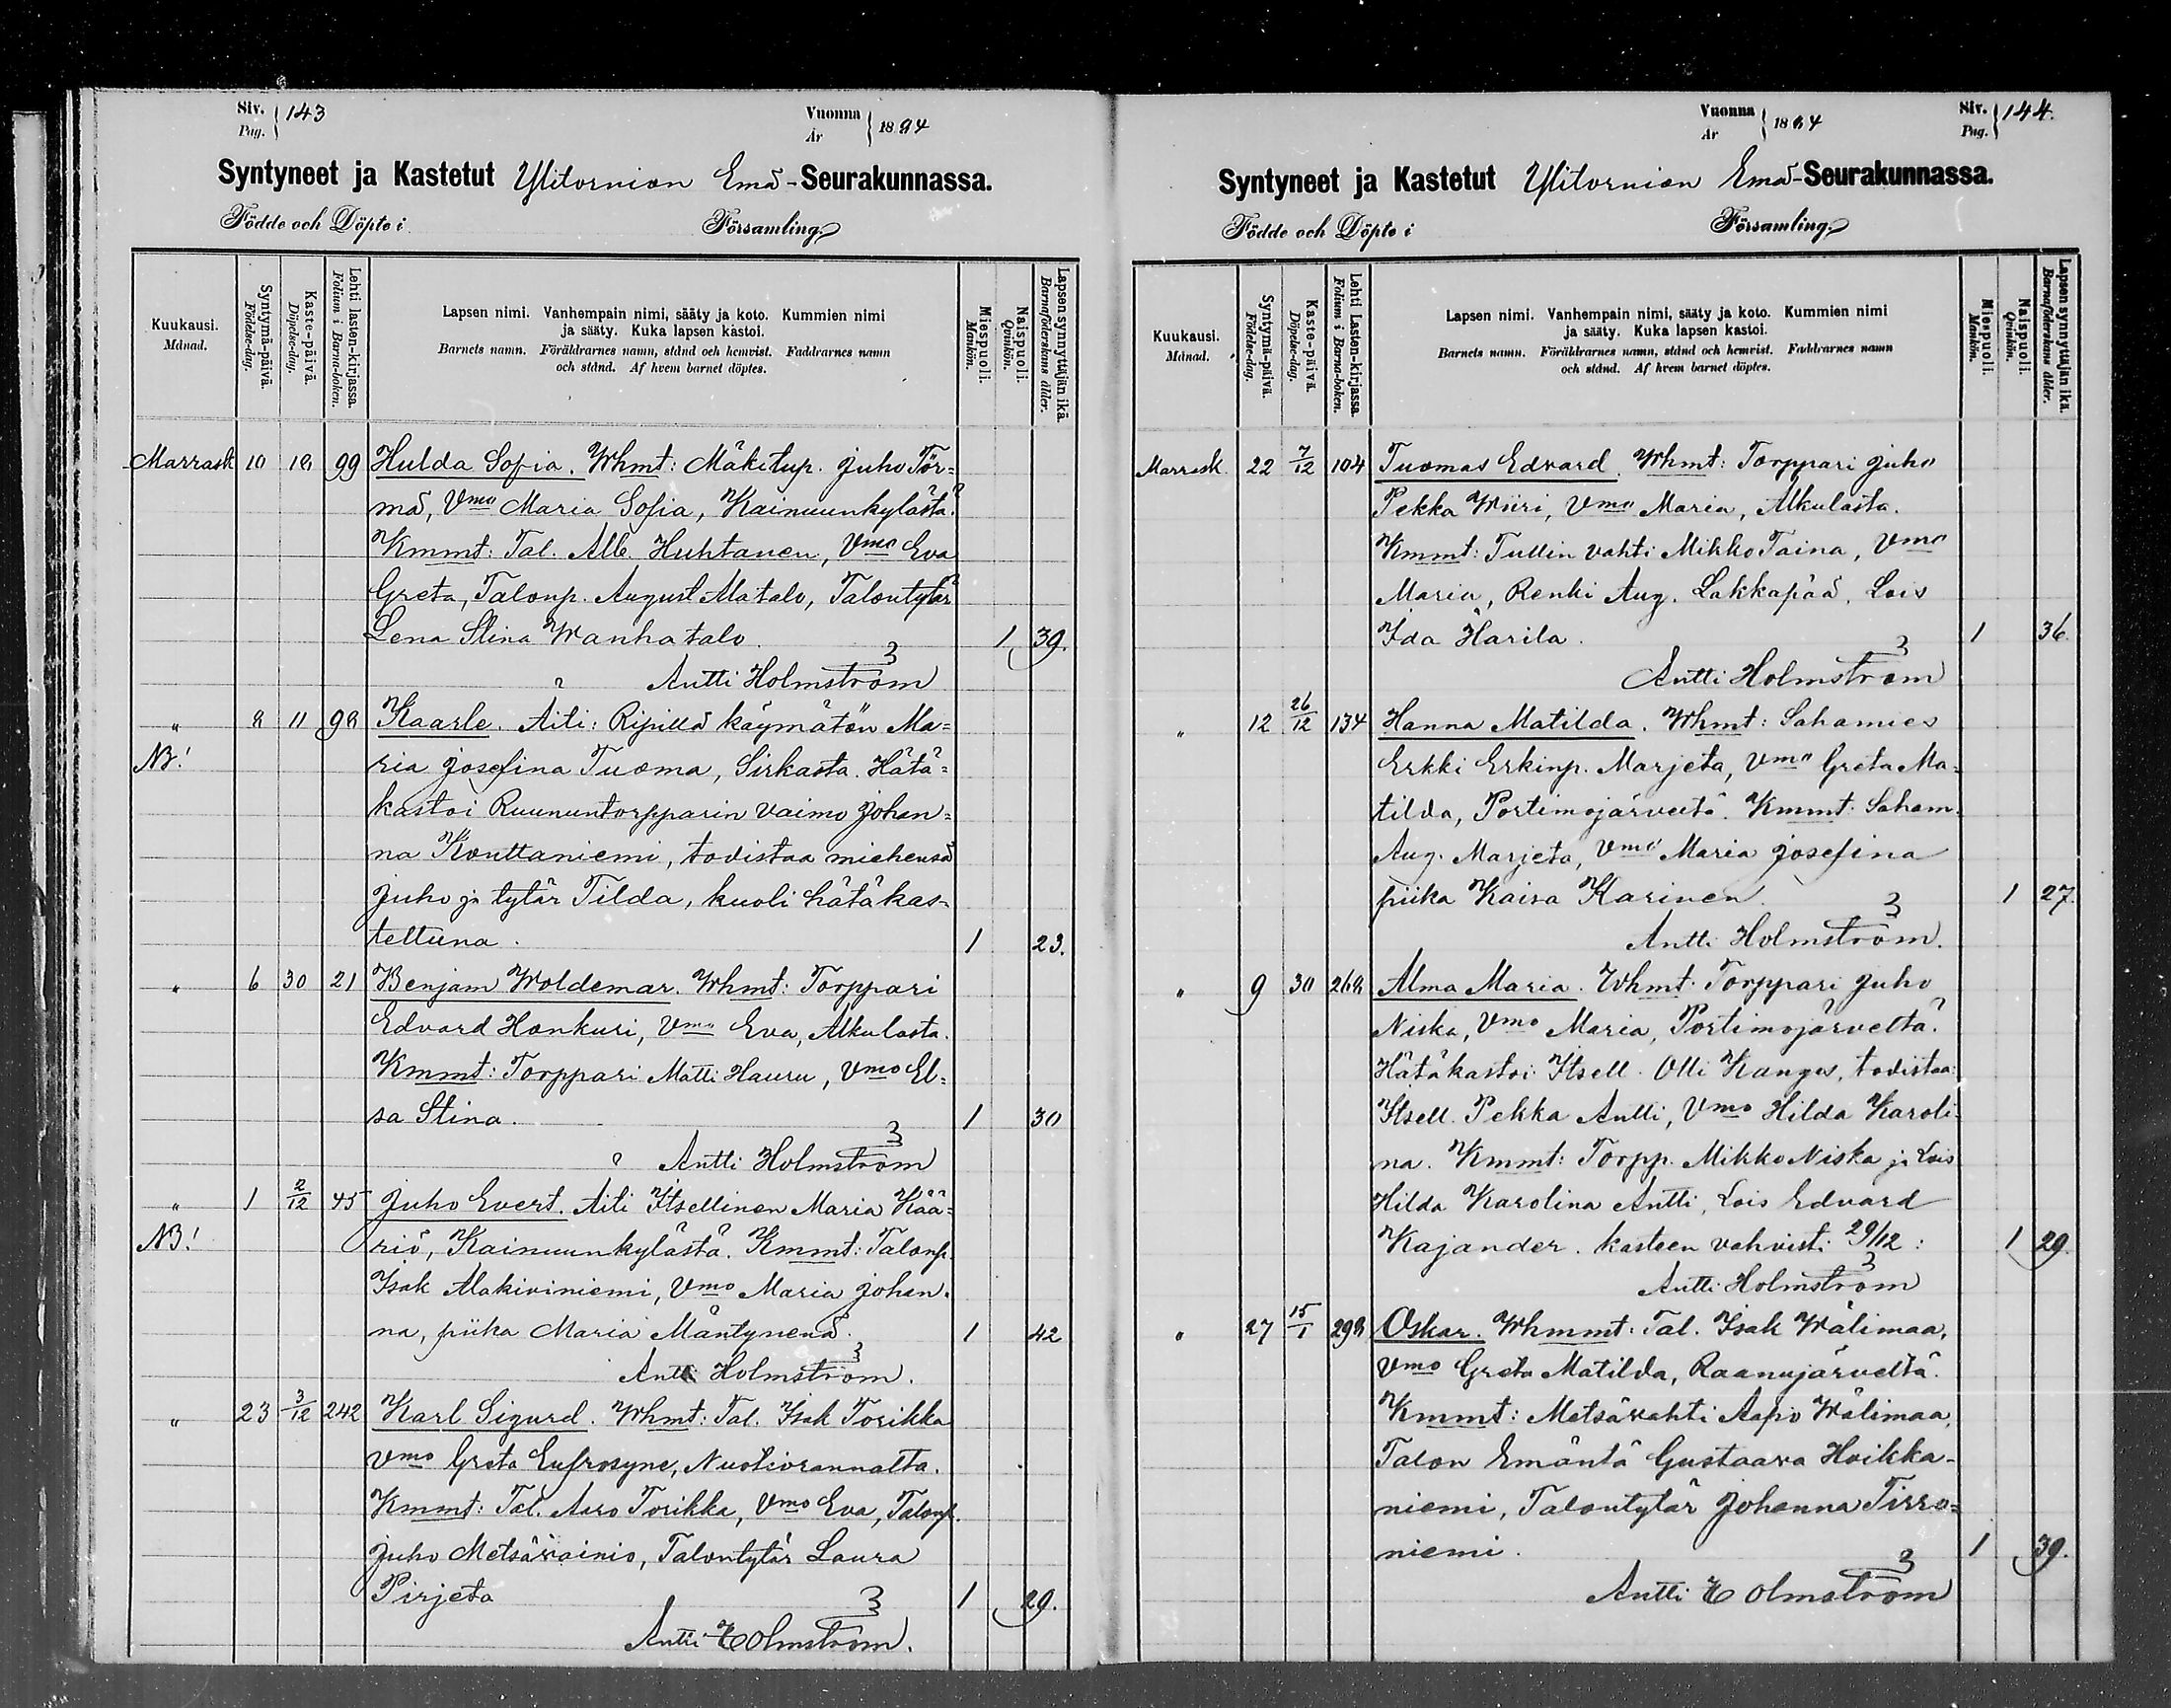 Siv. 143
Pag.
Vuonna 1894
År
Syntyneet ja Kastetut Ylitornion Emä-Seurakunnassa.
Födde och Döpte i Församling.
Kuukausi.
Månad.
Syntymä-päivä.
Födelse-dag.
Kaste-päivä.
Döpelse-dag.
Lehti lasten-kirjassa.
Folium i Barna-boken.
Lapsen nimi. Vanhempain nimi, sääty ja koto. Kummien nimi
ja sääty. Kuka lapsen kastoi.
Barnets namn. Föräldrarnes namn, stånd och hemvist. Faddrarnes namn
och stånd. Af hvem barnet döptes.
Miespuoli.
Mankön.
Naispuoli.
Qvinkön.
Lapsen synnyttäjän ikä.
Barnaföderskans ålder.
Marrask 10 18 99 Hulda Sofia. Whmt: Mäkitup. Juho Tör=
mä, Vmo Maria Sofia, Kainuunkylästä.
Kmmt: Tal. Alb. Huhtanen, Vmo Eva
Greta, Talonp. August Alatalo, Talontytär
Lena Stina Wanhatalo. 1 39.
Antti Holmström
" 8 11 98 Kaarle. Äiti: Ripillä käymätön Ma=
NB! ria Josefina Tuoma, Sirkasta. Hätä=
kastoi Ruununtorpparin vaimo Johan=
na Kouttaniemi, todistaa miehensä
Juho ja tytär Tilda, kuoli hätäkas=
tettuna. 1 23.
" 6 30 21 Benjam Woldemar. Whmt: Torppari
Edvard Honkuri, Vmo Eva, Alkulasta.
Kmmt: Torppari Matti Hauru, Vmo El=
sa Stina. 1 30
Antti Holmström
" 1 2/12 45 Juho Evert. Äiti Itsellinen Maria Kää=
NB! riö, Kainuunkylästä. Kmmt: Talonp.
Isak Alakiviniemi, Vmo Maria Johan.
na, piika Maria Mäntynenä. 1 42
Antti Holmström.
" 23 3/12 242 Karl Sigurd. Whmt: Tal. Isak Torikka
Vmo Greta Eufrosyne, Nuotiorannalta.
Kmmt: Tal. Aaro Torikka, Vmo Eva, Talonp.
Juho Metsäwainio, Talontytär Laura
Pirjeta 1 29.
Antti Holmström.
Vuonna 1894
År
Siv. 144.
Pag.
Syntyneet ja Kastetut Ylitornion Emä-Seurakunnassa.
Födde och Döpte i Församling.
Kuukausi.
Månad.
Syntymä-päivä.
Födelse-dag.
Kaste-päivä.
Döpelse-dag.
Lehti Lasten-kirjassa.
Folium i Barna-boken.
Lapsen nimi. Vanhempain nimi, sääty ja koto. Kummien nimi
ja sääty. Kuka lapsen kastoi.
Barnets namn. Föräldrarnes namn, stånd och hemvist. Faddrarnes namn
och stånd. Af hvem barnet döptes.
Miespuoli.
Mankön.
Naispuoli.
Qvinkön.
Lapsen synnyttäjän ikä.
Barnaföderskans ålder.
Marrask 22 7/12 104 Tuomas Edvard. Whmt: Torppari Juho
Pekka Wiiri, Vmo Maria, Alkulasta.
Kmmt: Tullin vahti Mikko Taina, Vmo
Maria, Renki Aug. Lakkapää, Lois
Ida Harila. 1 36
Antti Holmström
" 12 26/12 134 Hanna Matilda. Whmt: Sahamies
Erkki Erkinp. Marjeta, Vmo Greta Ma=
tilda, Portimojärveltä. Kmmt: Saham.
Aug. Marjeta, Vmo Maria Josefina
piika Kaisa Karinen. 1 27.
Antti Holmström.
" 9 30 268 Alma Maria. Whmt. Torppari Juho
Niska, Vmo Maria, Portimojärveltä.
Hätäkastoi Itsell. Olli Kangas, todistaa:
Itsell. Pekka Antti, Vmo Hilda Karoli=
na. Kmmt: Torpp. Mikko Niska ja Lois
Hilda Karolina Antti, Lois Edvard
Kajander. kasteen vahvisti 29/12: 1 29.
Antti Holmström
" 27 15/1 298 Oskar. Whmmt: Tal. Isak Wälimaa,
Vmo Greta Matilda, Raanujärveltä.
Kmmt: Metsäwahti Aapo Wälimaa,
Talon Emäntä Gustaava Hoikka-
niemi, Talontytär Johanna Tirro=
niemi. 1 39.
Antti Holmström